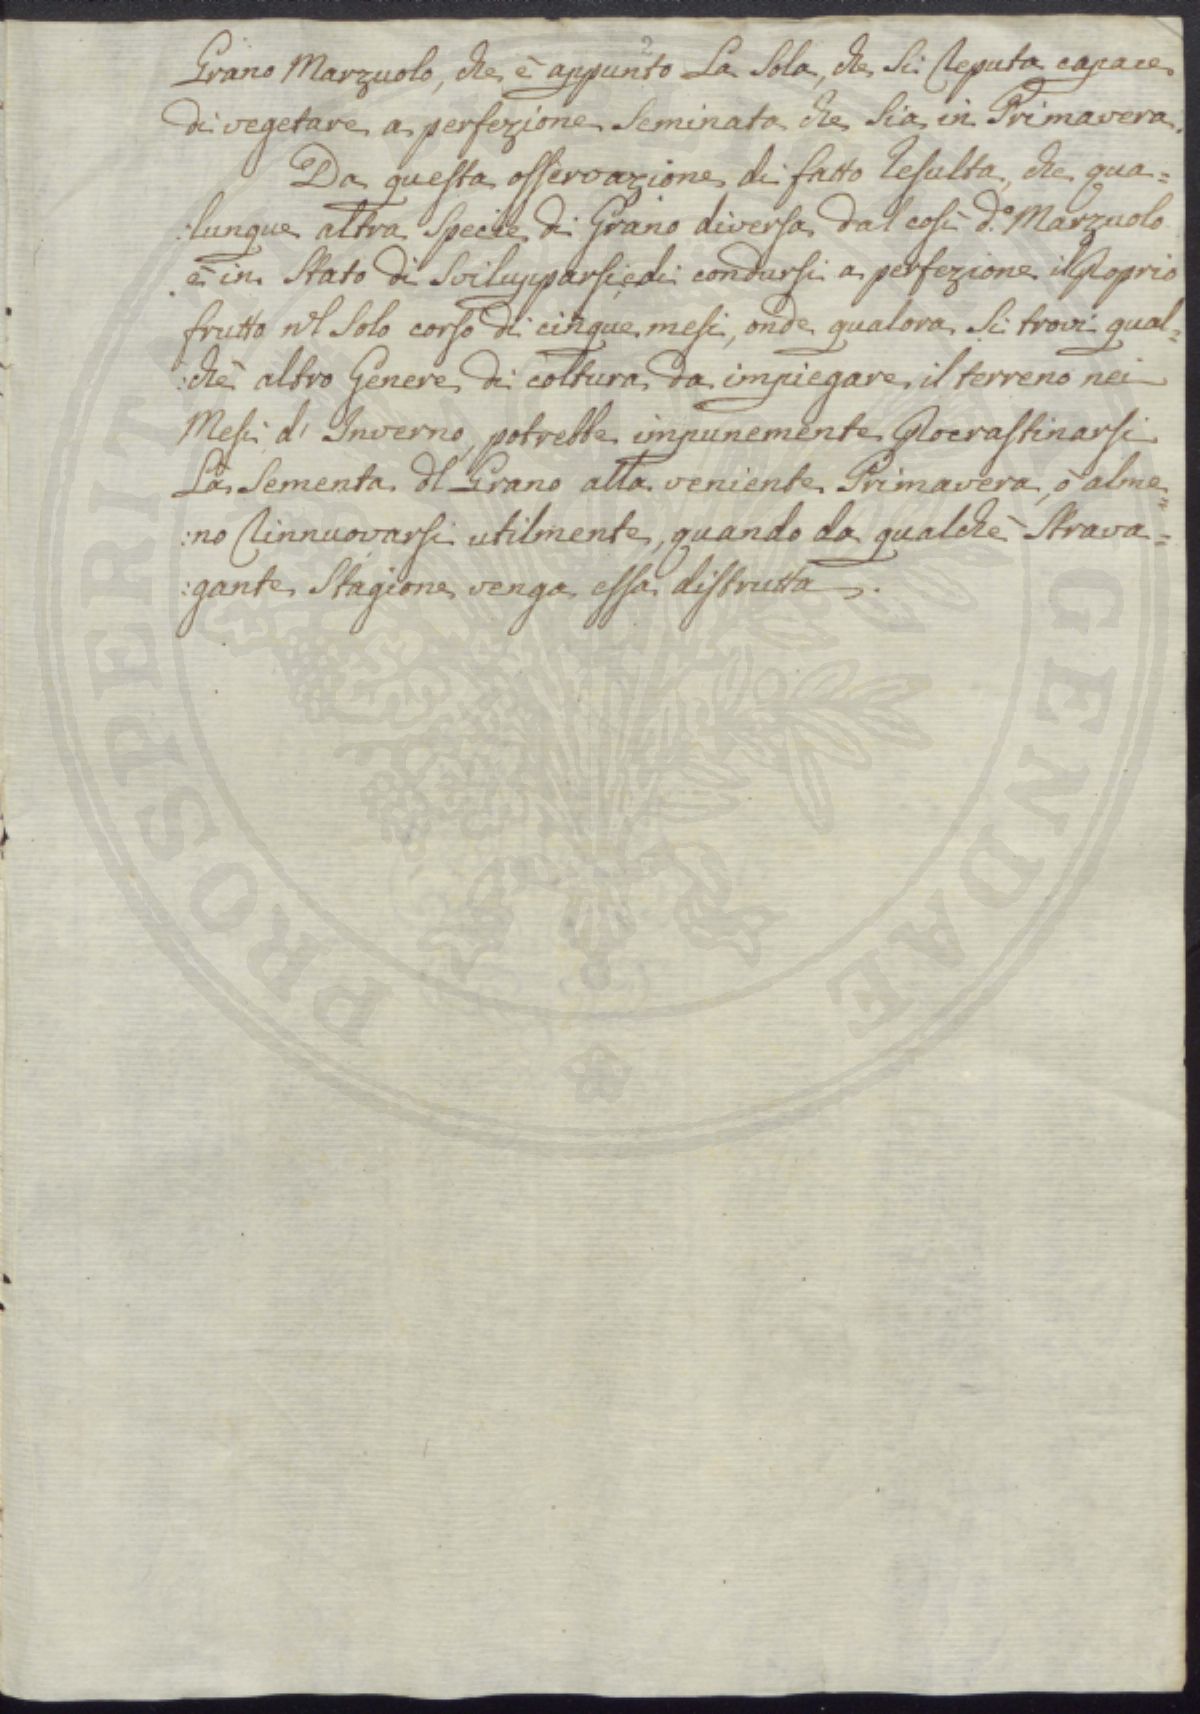 Grano Marzuolo, che è appunto La Sola, che Si Reputa capace
di vegetare a perfezione Seminata che Sia in Primavera.
Da questa osservazione di fatto Resulta, che qua=
:lunque altra Specie di Grano diversa dal così d.º Marzuolo
è in Stato di Svilupparsi, e di condursi a perfezione il Proprio
frutto nel Solo corso di cinque mesi, onde qualora Si trovi qual=
:chè altro Genere di coltura da impiegare il terreno nei
Mesi d' Inverno, potrebbe impunemente Procrastinarsi
La Sementa del Grano alla veniente Primavera, ò alme=
:no Rinnuovarsi utilmente, quando da qualchè Strava=
:gante Stagione venga essa distrutta.
PROSPERITATI PUBLICAE AUGENDAE